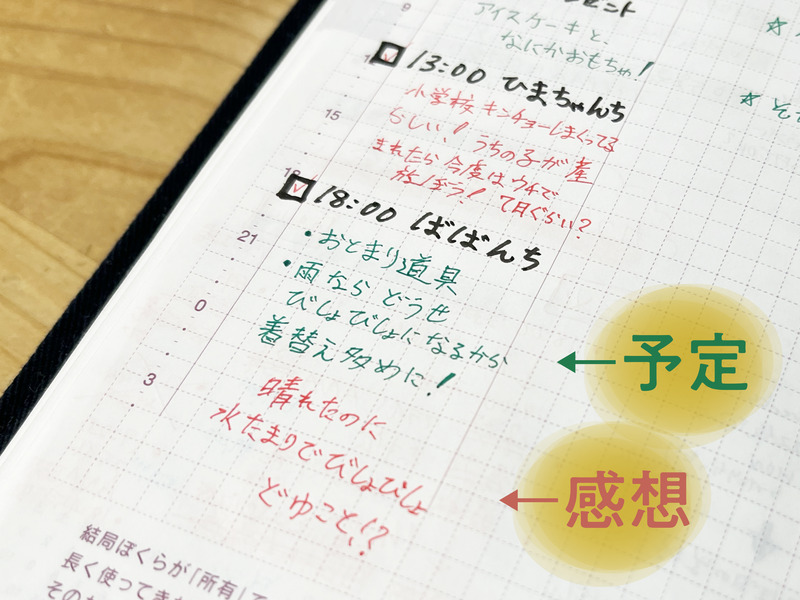 アイスケーキと、
なにかおもちゃ!
9
13:00 ひまちゃんち
小学校 キンチョーしまくってる
らしい! うちの子が産
まれたら今度はウチで
15
18:00 ばばんち
・おとまり道具
21
・雨なら どうせ
びしょびしょになるから
0
着替え多めに!
←予定
3
晴れたのに
水たまりでびしょびしょ
どゆこと!?
←感想
結局ぼくらが「所有」
長く使ってき